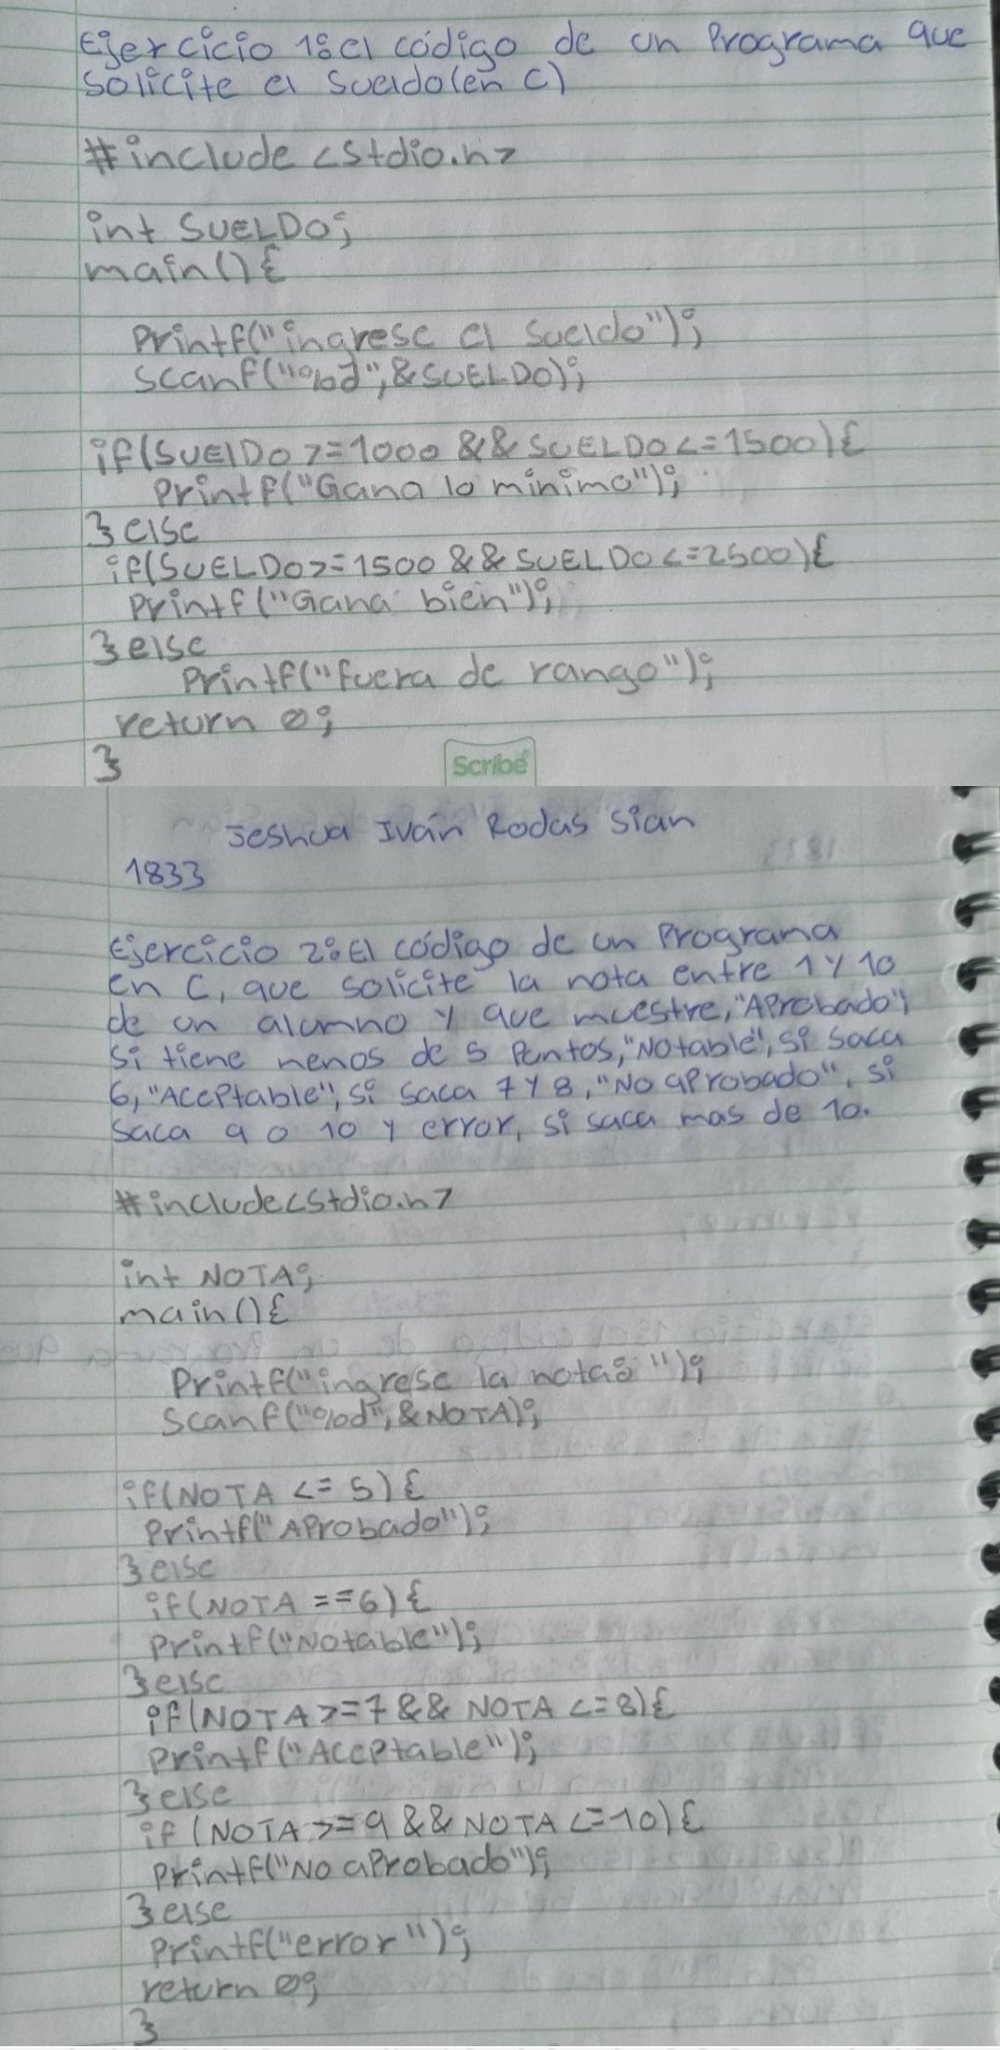 Ejercicio 1: el código de un Programa que
solicite el sueldo(en C)
#include <stdio.h>
int SUELDO;
main(){
Printf("ingrese el sueldo");
scanf("%d",&SUELDO);
if(SUElDO >=1000 && SUELDO <=1500){
Printf("Gana lo minimo");
}else
if(SUELDO>=1500 && SUELDO <=2500){
Printf("Gana bien");
}else
Printf("fuera de rango");
return 0;
}
Scribe
Jeshua Iván Rodas Sian
1833
Ejercicio 2: El código de un Programa
en C, que solicite la nota entre 1 y 10
de un alumno y que muestre,"AProbado",
si tiene menos de 5 Puntos,"Notable", si saca
6,"AcePtable", si saca 7 y 8, "No aProbado", si
saca 9 o 10 y error, si saca mas de 10.
#include<stdio.h>
int NOTA;
main(){
Printf("ingrese la nota: ");
scanf("%d",&NOTA);
if(NOTA <= 5){
Printf("AProbado");
}else
if(NOTA ==6){
Printf("Notable");
}else
if(NOTA>=7 && NOTA <=8){
Printf("AcePtable");
}else
if (NOTA>=9 && NOTA <=10){
Printf("No aProbado");
}else
Printf("error");
return 0;
}